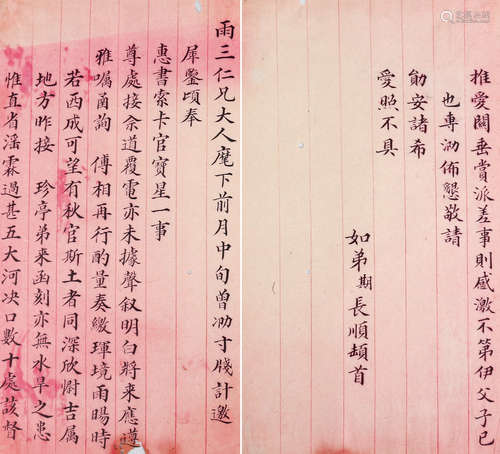 雨三仁兄大人麾下前月中旬曾泐寸牋計邀
犀鑒頃奉
惠書索卡官寶星一事
尊處接余道覆電亦未據聲叙明白將來應遵
雅囑函詢 傅相再行酌量奏繳琿境雨暘時
若西成可望有秋官斯土者同深欣慰吉属
地方昨接 珍亭弟來函刻亦無水旱之患
惟直省滛霖過甚五大河決口數十處該督
推愛關垂賞派差事則感激不第伊父子已
也專泐佈懇敬請
勛安諸希
愛照不具
如弟期長順頓首